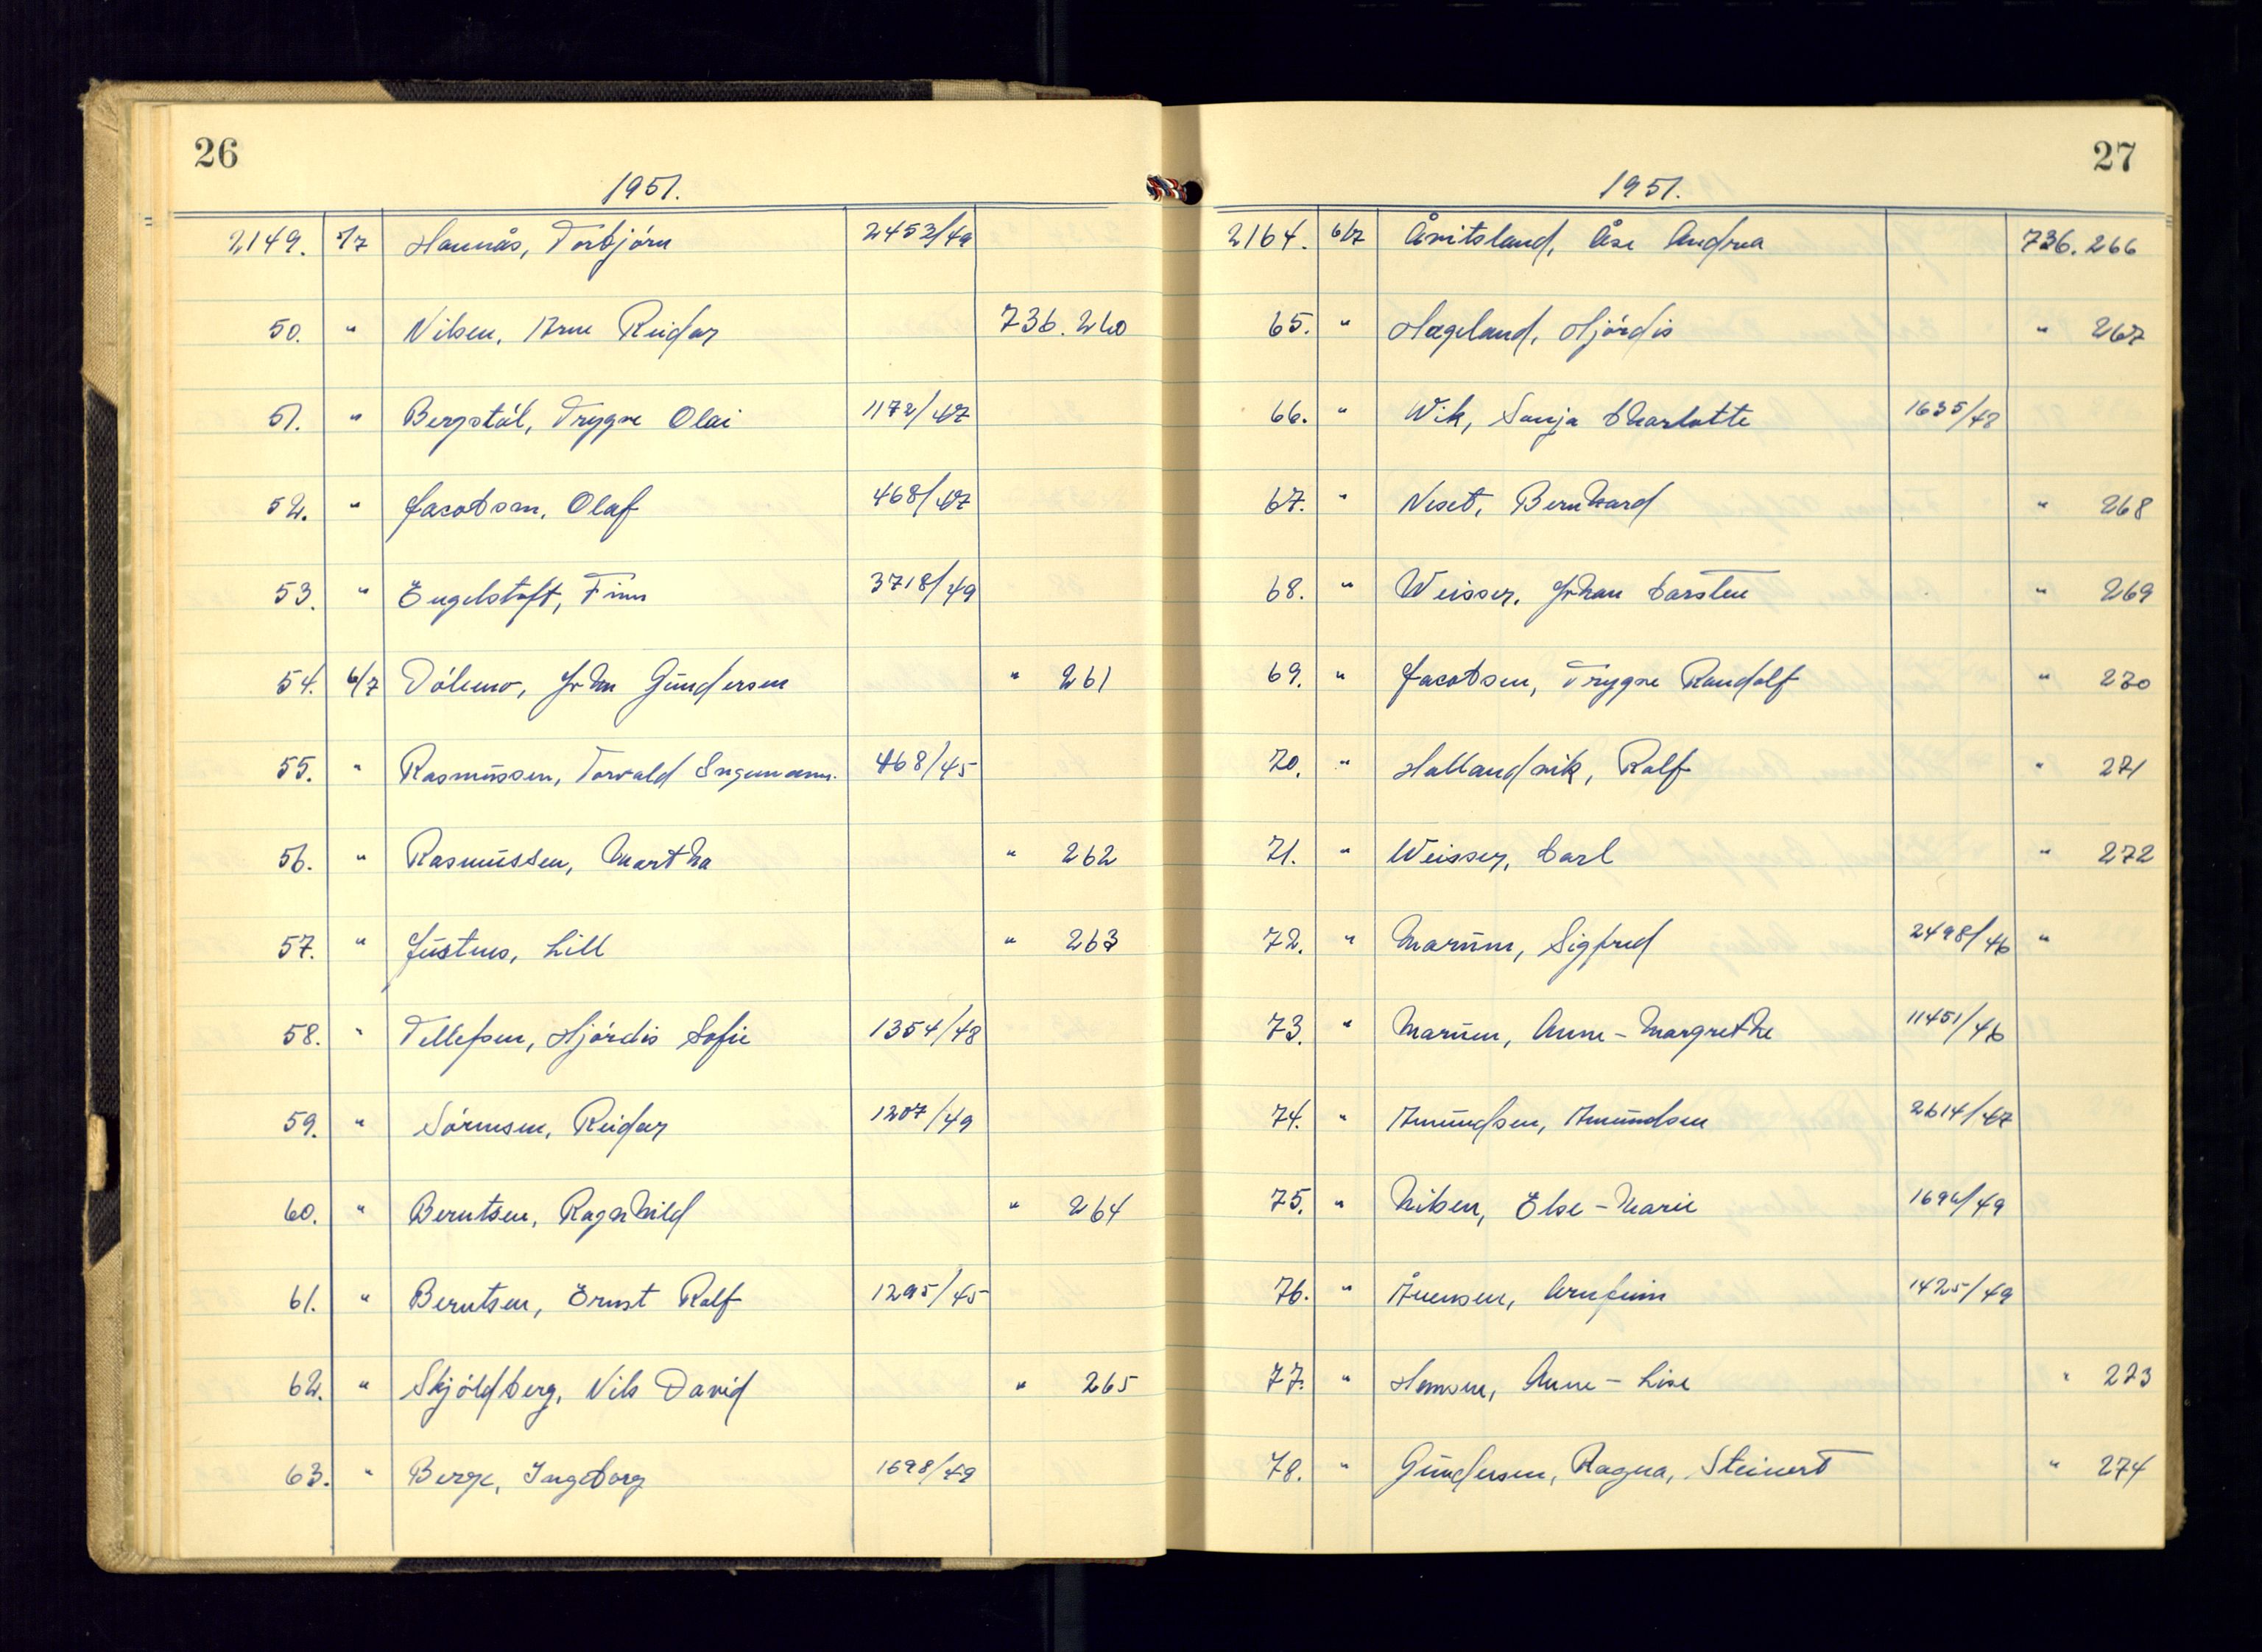 26
1951.
2149. 5/7 Hannås, Torbjörn 2453/49
50. " Nilsen, Arne Reidar 736.260
51. " Bergstöl, Trygve Olai 1172/47
52. " Jacobsen, Olaf 468/47
53. " Engelstoft, Finn 3718/49
54. 6/7 Dölemo, John Gundersen " 261
55. " Rasmussen, Torvald Ingemann. 468/45
56. " Rasmussen, Martha " 262
57. " Justnes, Lill " 263
58. " Tellefsen, Hjördis Sofie 1354/48
59. " Sörensen, Reidar 1207/49
60. " Berntsen, Ragnhild " 264
61. " Berntsen, Ernst Rolf 1295/45
62. " Skjöldberg, Nils David " 265
63. " Berge, Ingeborg 1698/49
27
1951.
2164. 6/7 Åvitsland, Åse Andrea 736.266
65. " Hægeland, Hjördis " 267
66. " Wik, Sonja Charlotte 1635/48
67. " Neset, Bernhard " 268
68. " Weisser, Johan Carsten " 269
69. " Jacobsen, Trygve Randolf " 270
70. " Hallandvik, Ralf " 271
71. " Weisser, Carl " 272
72. " Marum, Sigfred 2498/46 "
73. " Marum, Anne-Margrethe 11451/46
74. " Amundsen, Amundsen 2614/47
75. " Nilsen, Else-Marie 1696/49
76. " Ånensen, Arnfinn 1425/49
77. " Hansen, Anne-Lise " 273
78. " Gundersen, Ragna, Steinert " 274